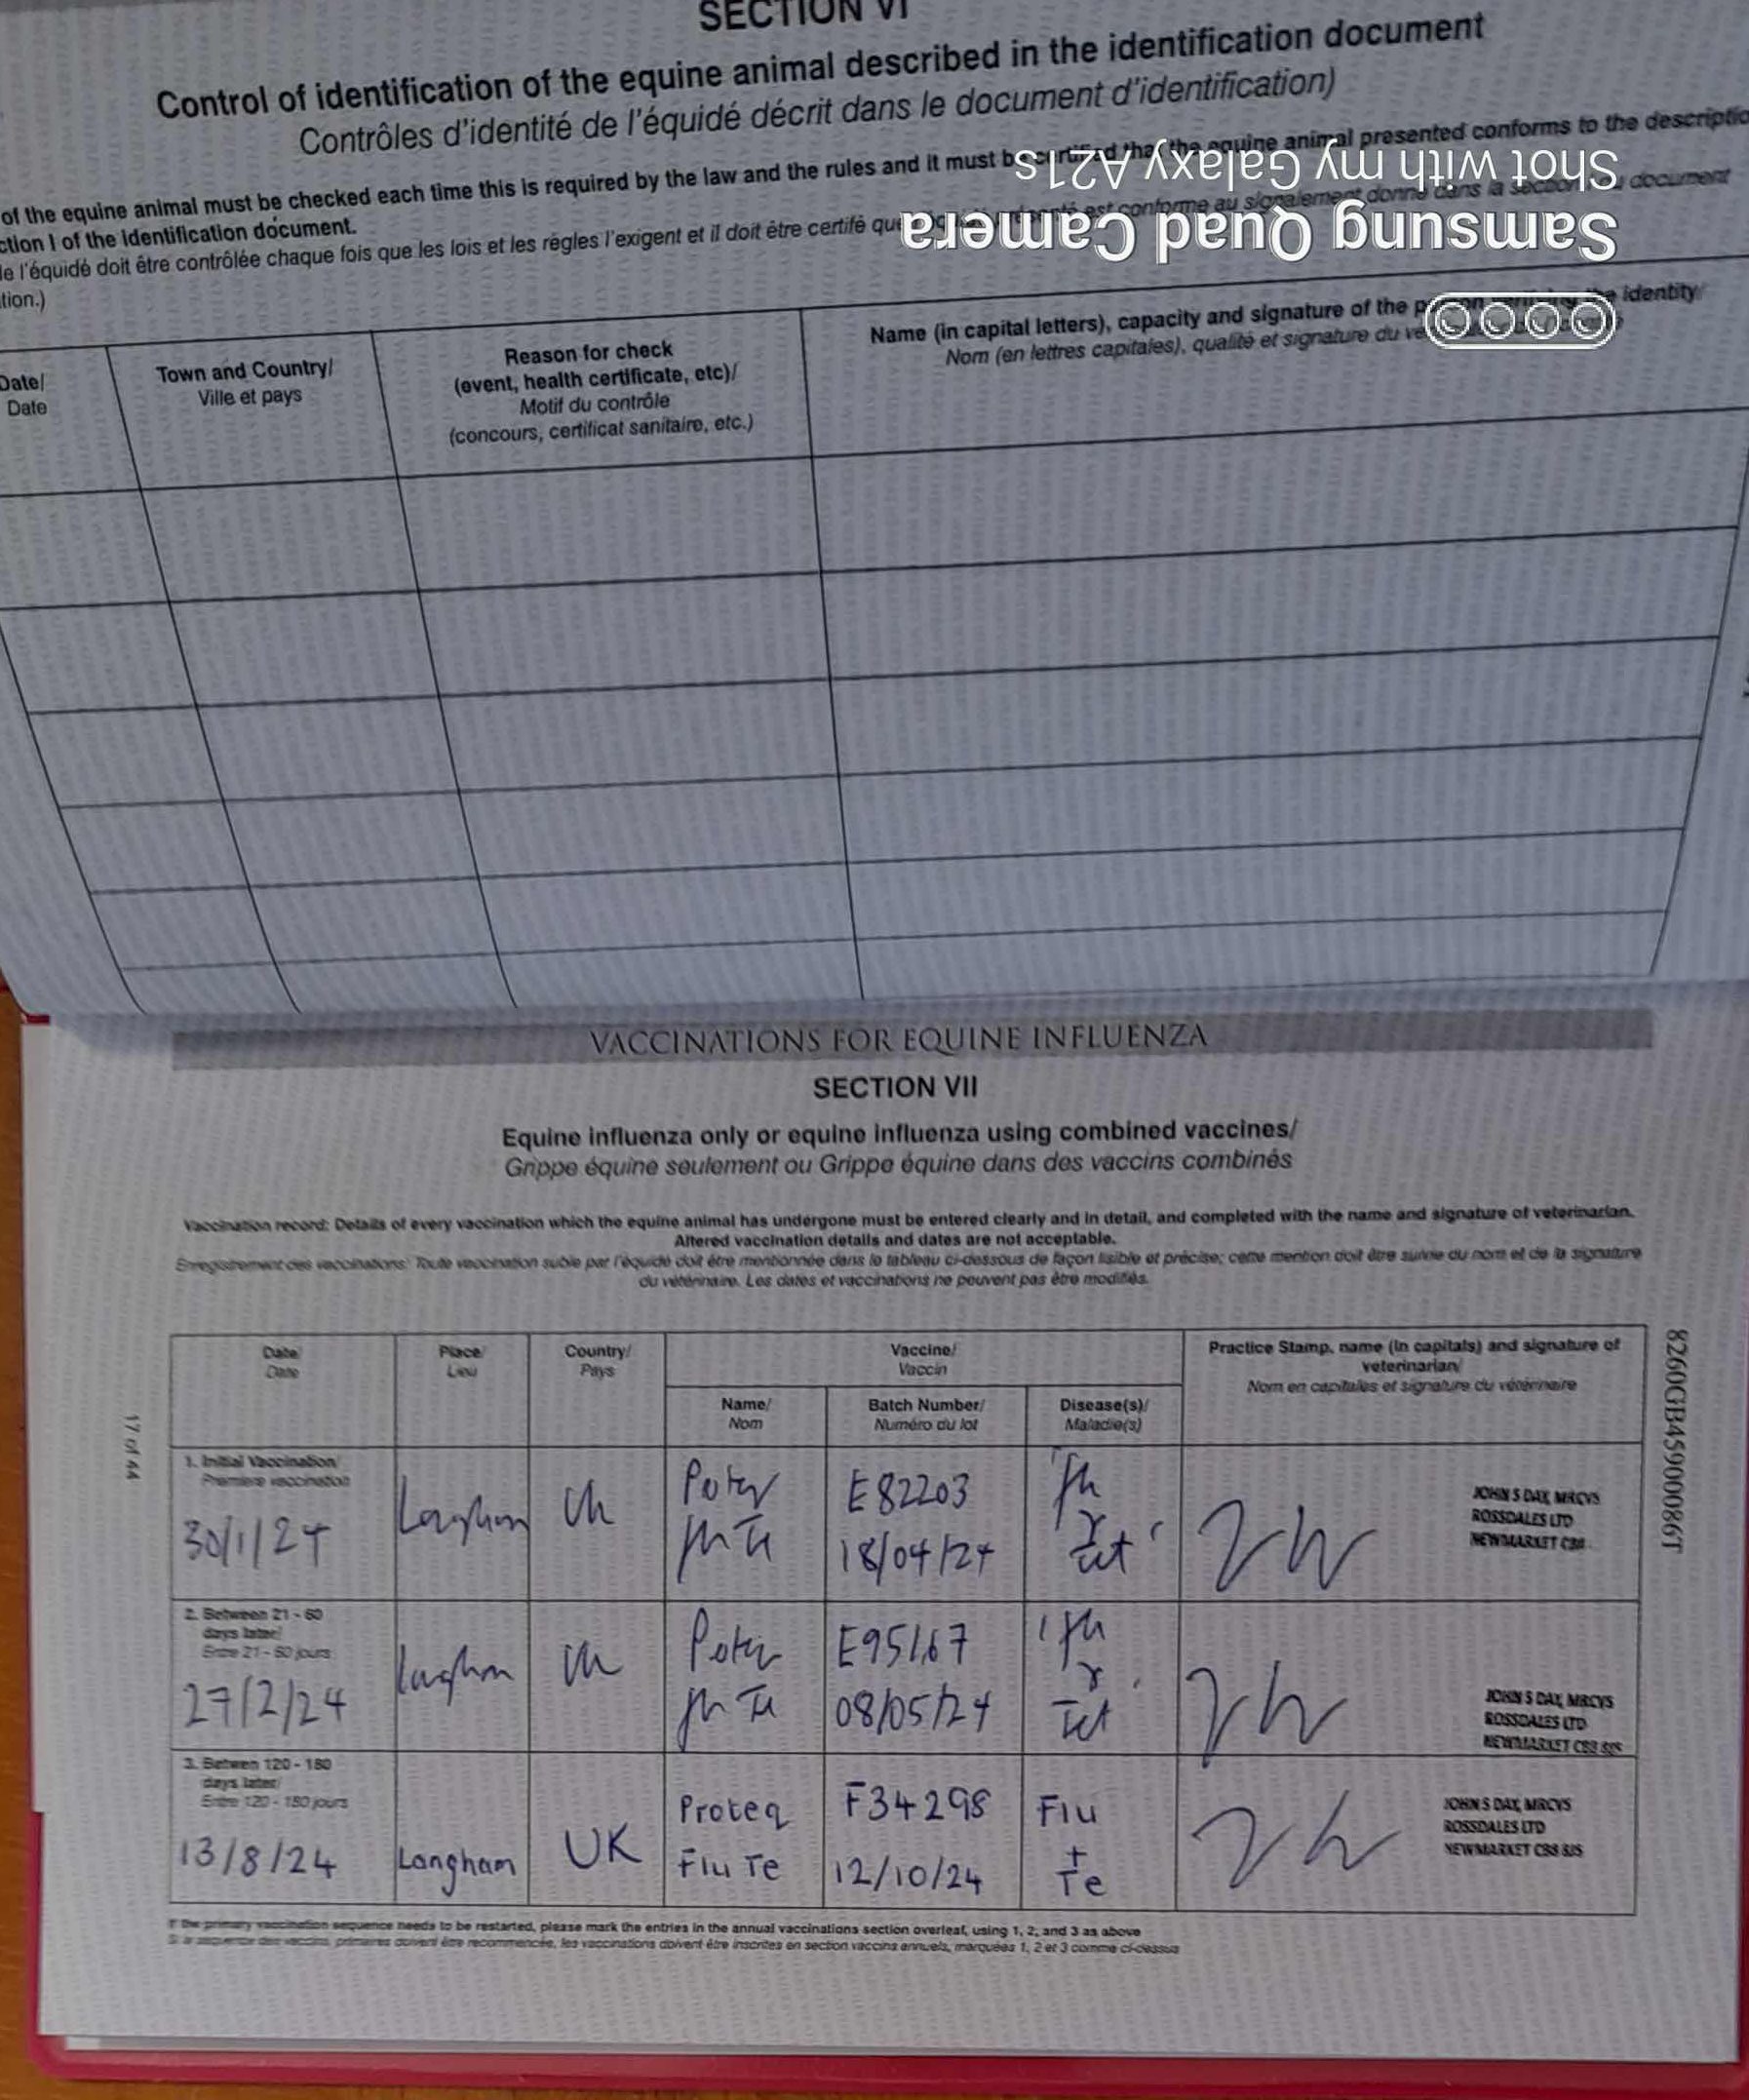 SECTION VI
Control of identification of the equine animal described in the identification document
Contrôles d'identité de l'équidé décrit dans le document d'identification)
of the equine animal must be checked each time this is required by the law and the rules and it must be certified that the equine animal presented conforms to the descriptio
ction I of the identification document.
de l'équidé doit être contrôlée chaque fois que les lois et les règles l'exigent et il doit être certifé que présenté est conforme au signalement donné dans la section du document
tion.)
Shot with my Galaxy A21s
Samsung Quad Camera
Date/
Date
Town and Country/
Ville et pays
Reason for check
(event, health certificate, etc)/
Motif du contrôle
(concours, certificat sanitaire, etc.)
Name (in capital letters), capacity and signature of the person the identity/
Nom (en lettres capitales), qualité et signature du
VACCINATIONS FOR EQUINE INFLUENZA
SECTION VII
Equine influenza only or equine influenza using combined vaccines/
Grippe équine seulement ou Grippe équine dans des vaccins combinés
Vaccination record: Details of every vaccination which the equine animal has undergone must be entered clearly and in detail, and completed with the name and signature of veterinarian.
Altered vaccination details and dates are not acceptable.
Enregistrement des vaccinations: Toute vaccination subie par l'équidé doit être mentionnée dans le tableau ci-dessous de façon lisible et précise; cette mention doit être suivie du nom et de la signature
du vétérinaire. Les dates et vaccinations ne peuvent pas être modifiés.
Date/
Date
Place/
Lieu
Country/
Pays
Vaccine/
Vaccin
Name/
Nom
Batch Number/
Numéro du lot
Disease(s)/
Maladie(s)
Practice Stamp, name (in capitals) and signature of
veterinarian/
Nom en capitales et signature du vétérinaire
1. Initial Vaccination/
Premiere vaccination
30/1/24
Langham
UK
E82203
18/04/24
Tet
JOHN S DAY, MRCVS
ROSSDALES LTD
NEWMARKET CB8
2. Between 21 - 60
days later/
Entre 21 - 60 jours
27/2/24
Langham
UK
E95167
08/05/24
Tet
JOHN S DAY, MRCVS
ROSSDALES LTD
NEWMARKET CB8 8JS
3. Betwen 120 - 180
days later/
Entre 120 - 180 jours
13/8/24
Langham
UK
Proteq
Flu Te
F34298
12/10/24
Flu
+
Te
JOHN S DAY, MRCVS
ROSSDALES LTD
NEWMARKET CB8 8JS
If the primary vaccination sequence needs to be restarted, please mark the entries in the annual vaccinations section overleaf, using 1, 2, and 3 as above
Si la sequence des vaccins primaires doivent être recommencée, les vaccinations doivent être inscrites en section vaccins annuels, marquées 1, 2 et 3 comme ci-dessus
17 of 44
8260GB45900086T